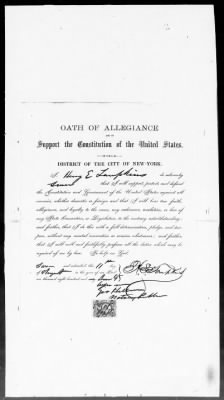 OATH OF ALLEGIANCE
AND TO
Support the Constitution of the United States.
DISTRICT OF THE CITY OF NEW YORK.
I, Henry E Tompkins do solemnly
swear that I will support, protect and defend
the Constitution and Government of the United States against all
enemies, whether domestic or foreign and that I will bear true faith,
allegiance, and loyalty to the same, any ordinance, resolution, or law of
any State Convention, or Legislature, to the contrary notwithstanding;
and further, that I do this with a full determination, pledge, and pur-
pose, without any mental reservation or evasion whatsoever; and further,
that I will well and faithfully perform all the duties which may be
required of me by law. So help me God.
Sworn and subscribed this 11th day
of August in the year of our Lord
one thousand eight hundred and sixty
before
Notary Public